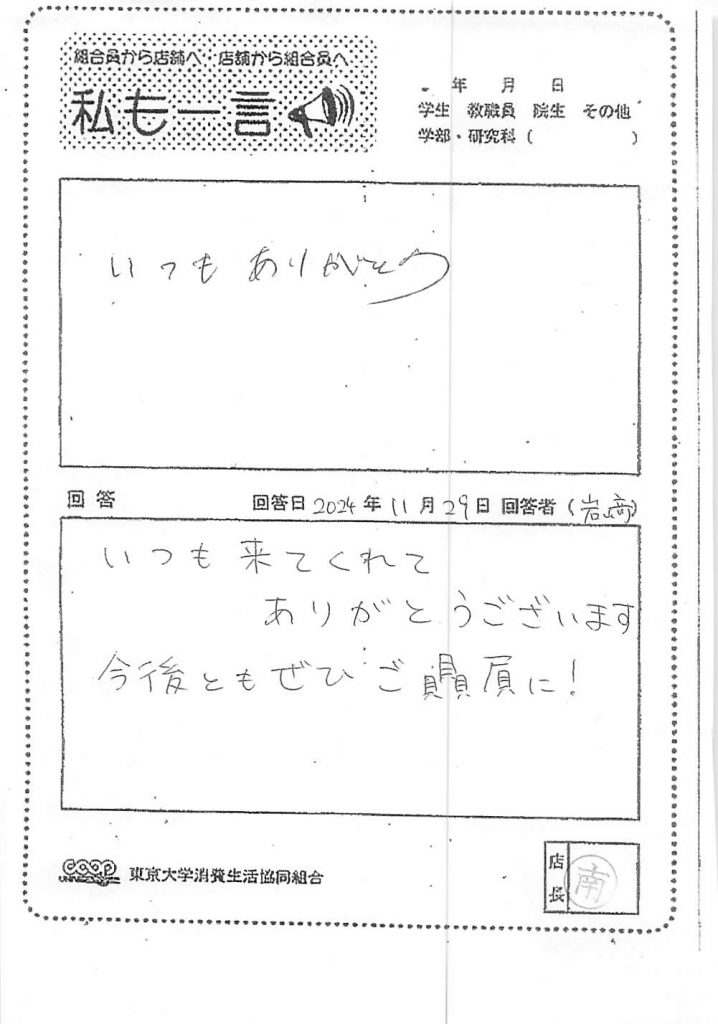 組合員から店舗へ 店舗から組合員へ
私も一言
年 月 日
学生 教職員 院生 その他
学部・研究科( )
いつもありがとう
回答 回答日 2024年 11月 29日 回答者(岩﨑)
いつも来てくれて
ありがとうございます
今後ともぜひご贔屓に!
coop
東京大学消費生活協同組合
店長
南